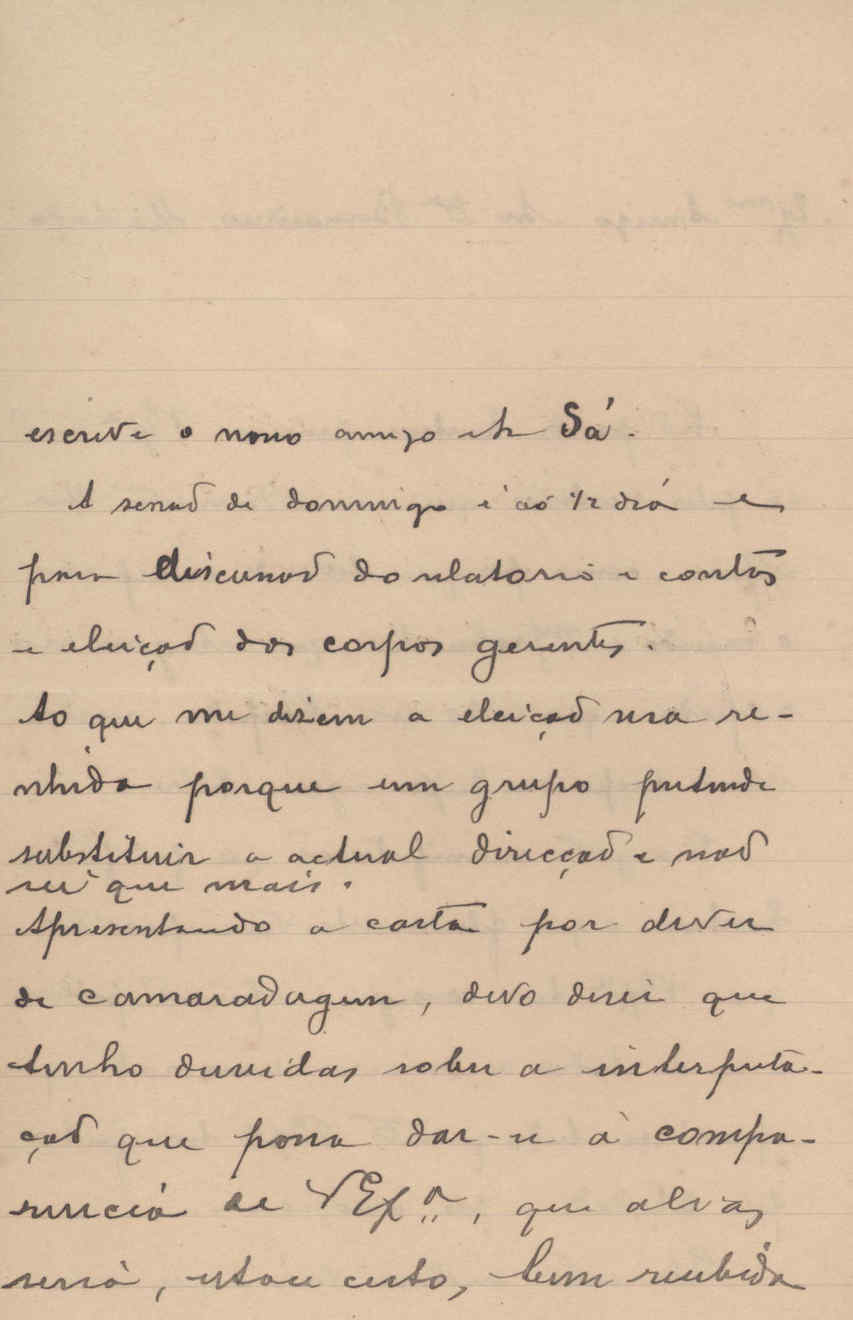 escreve o nosso amigo de Sá.
A sessaõ de domingo é ao 1/2 dia e
para discussaõ do relatorio e contas
e eleiçaõ dos corpos gerentes.
Ao que me dizem a eleiçaõ sera re-
nhida porque um grupo pretende
substituir a actual direcçaõ e naõ
sei que mais.
Apresentando a carta por dever
de camaradagem, devo dizer que
tenho duvidas sobre a interpreta-
çaõ que possa dar-se á compa-
rencia de V Exª, que aliás
seria, estou certo, bem recebida